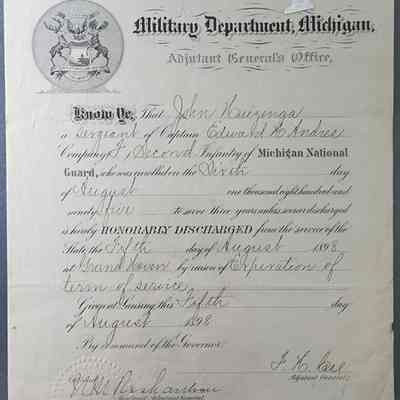 Military Department, Michigan,
Adjutant General's Office,
Know Ye, That John Huizenga
a Sergeant of Captain Edward K Andres
Company F, Second Infantry of Michigan National
Guard, who was enrolled on the Sixth day
of August one thousand eight hundred and
ninety five to serve three years unless sooner discharged
is hereby HONORABLY DISCHARGED from the service of the
State, the Fifth day of August 1898
at Grand Haven by reason of Expiration of
term of service
Given at Lansing this Fifth day
of August 1898
By command of the Governor:
Adjutant General.